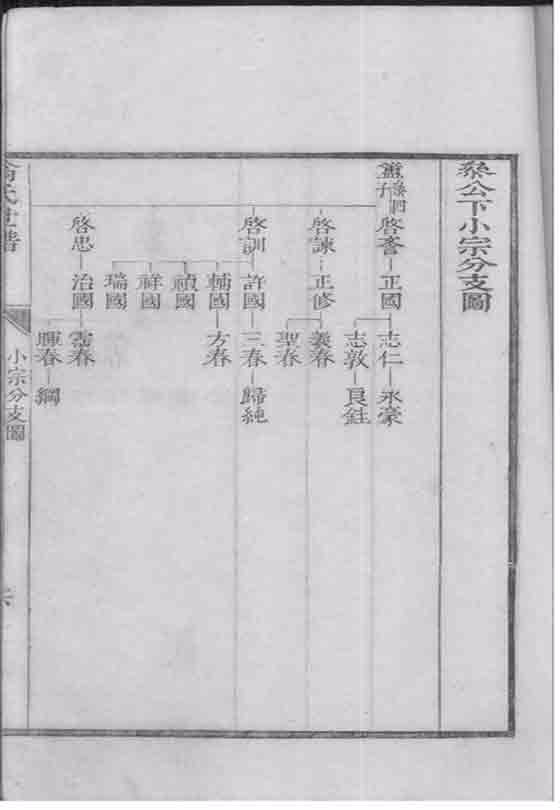 粲公下小宗分支圖
粲四子
啓訔 正國 志仁 永豪
志敦 良銈
啓諫 正修 義春
聖春
啓訓 許國 三春 歸純
輔國 方春
禎國
祥國
瑞國
啓忠 治國 霑春
暉春 綱
氏世譜
小宗分支圖
六